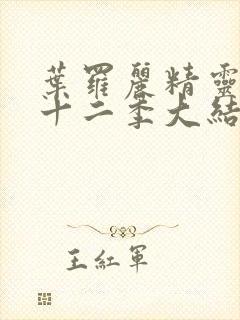 葉羅麗精靈
十二季大結
王紅軍